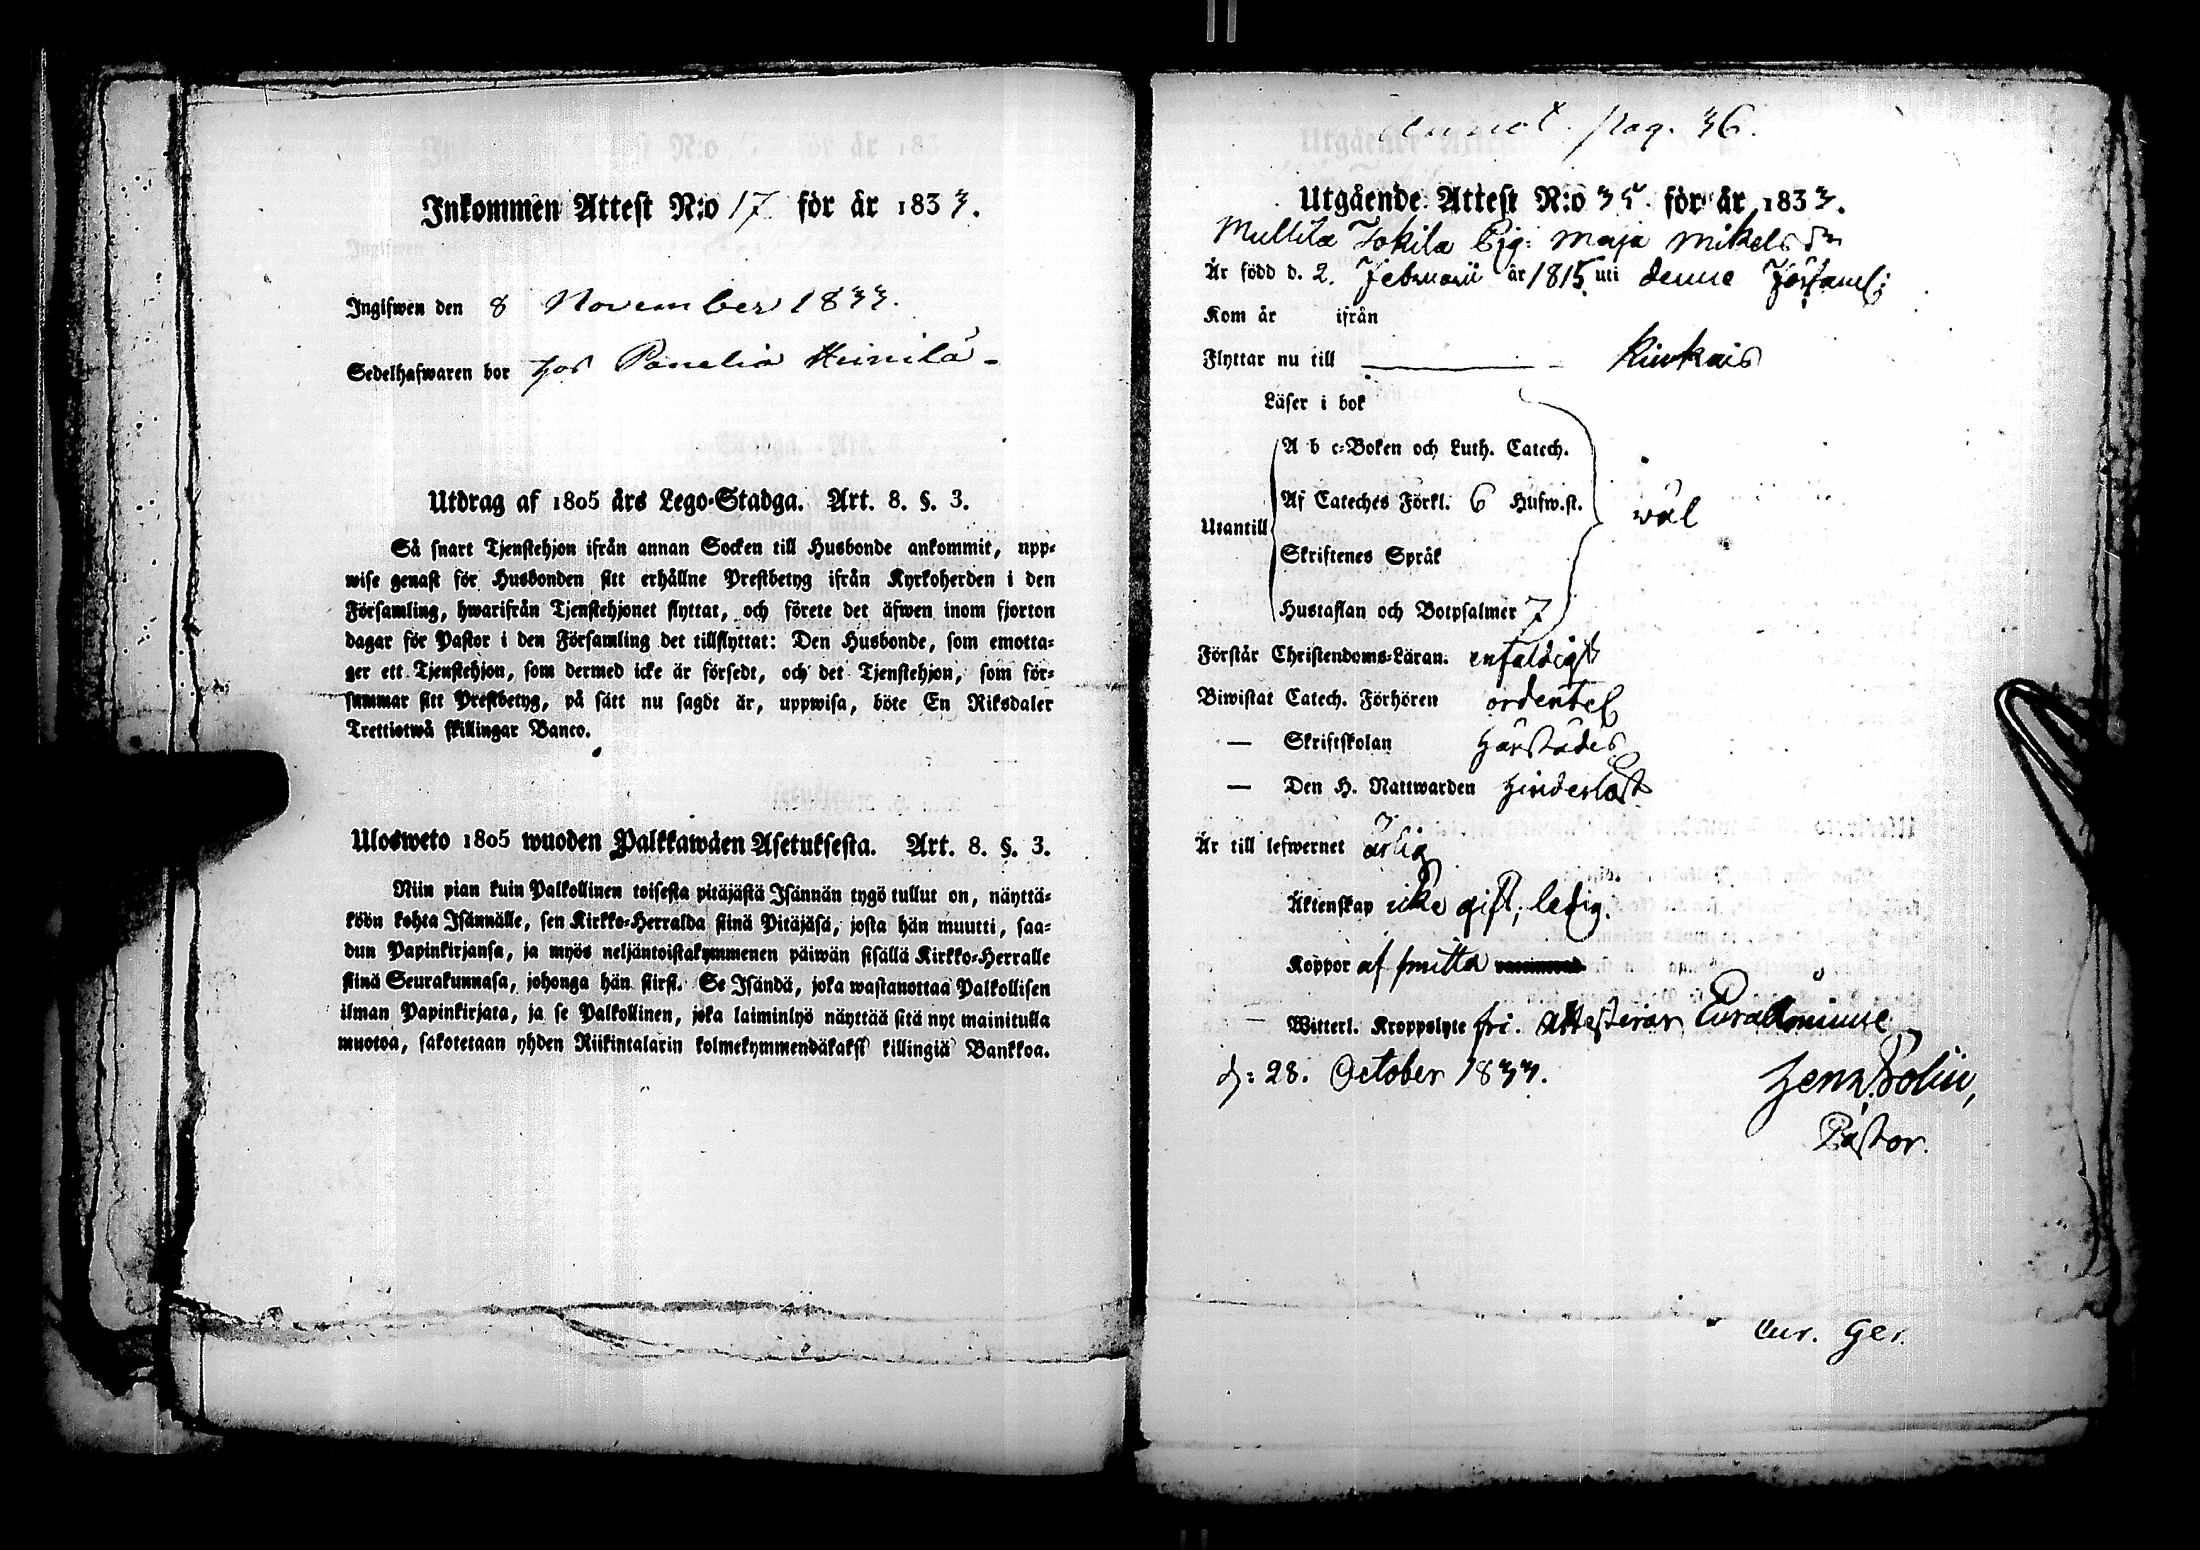 Inkommen Attest N:o 17 för år 1833.
Ingifwen den 8 November 1833.
Sedelhafwaren bor hos Panelia Heinilä -
Utdrag af 1805 års Lego-Stadga. Art. 8. §. 3.
Så snart Tjenstehjon ifrån annan Socken till Husbonde ankommit, upp-
wise genast för Husbonden sitt erhållne Prestbetyg ifrån Kyrkoherden i den
Församling, hwarifrån Tjenstehjonet flyttat, och förete det äfwen inom fjorton
dagar för Pastor i den Församling det tillflyttat: Den Husbonde, som emotta-
ger ett Tjenstehjon, som dermed icke är försedt, och det Tjenstehjon, som för-
summar sitt Prestbetyg, på sätt nu sagdt är, uppwisa, böte En Riksdaler
Trettiotwå skillingar Banco.
Ulosweto 1805 wuoden Palkkawäen Asetuksesta. Art. 8. §. 3.
Niin pian kuin Palkollinen toisesta pitäjästä Isännän tygö tullut on, näyttä-
köön kohta Isännälle, sen Kirkko-Herralda siinä Pitäjäsä, josta hän muutti, saa-
dun Papinkirjansa, ja myös neljäntoistakymmenen päiwän sisällä Kirkko-Herralle
siinä Seurakunnasa, johonga hän siirsi. Se Isändä, joka wastanottaa Palkollisen
ilman Papinkirjata, ja se Palkollinen, joka laiminlyö näyttää sitä nyt mainitulla
muotoa, sakotetaan yhden Riikintalarin kolmekymmendäkaksi killingiä Bankkoa.
annot. pag. 36.
Utgående Attest N:o 35 för år 1833.
Mullila Tokila Pig: Maja Mikelsdr
Är född d. 2. Februarii år 1815 uti denne Församl:
Kom år ifrån
Flyttar nu till Kiukais
Läser i bok
A b c-Boken och Luth. Catech.
Af Cateches Förkl. 6 Hufw.st.
Utantill wäl
Skriftenes Språk
Hustaflan och Botpsalmer 7
Förstår Christendoms-Läran. enfaldigt
Biwistat Catech. Förhören ordentel
— Skriftskolan härstädes
— Den H. Nattwarden hinderlöst
Är till lefwernet ärlig
Äktenskap icke gift, ledig.
Koppor af smitta
Witterl. Kroppslyte fri. Attesterar Euraåminne
d: 28. October 1833.
Pastor.
Eur. Ger.